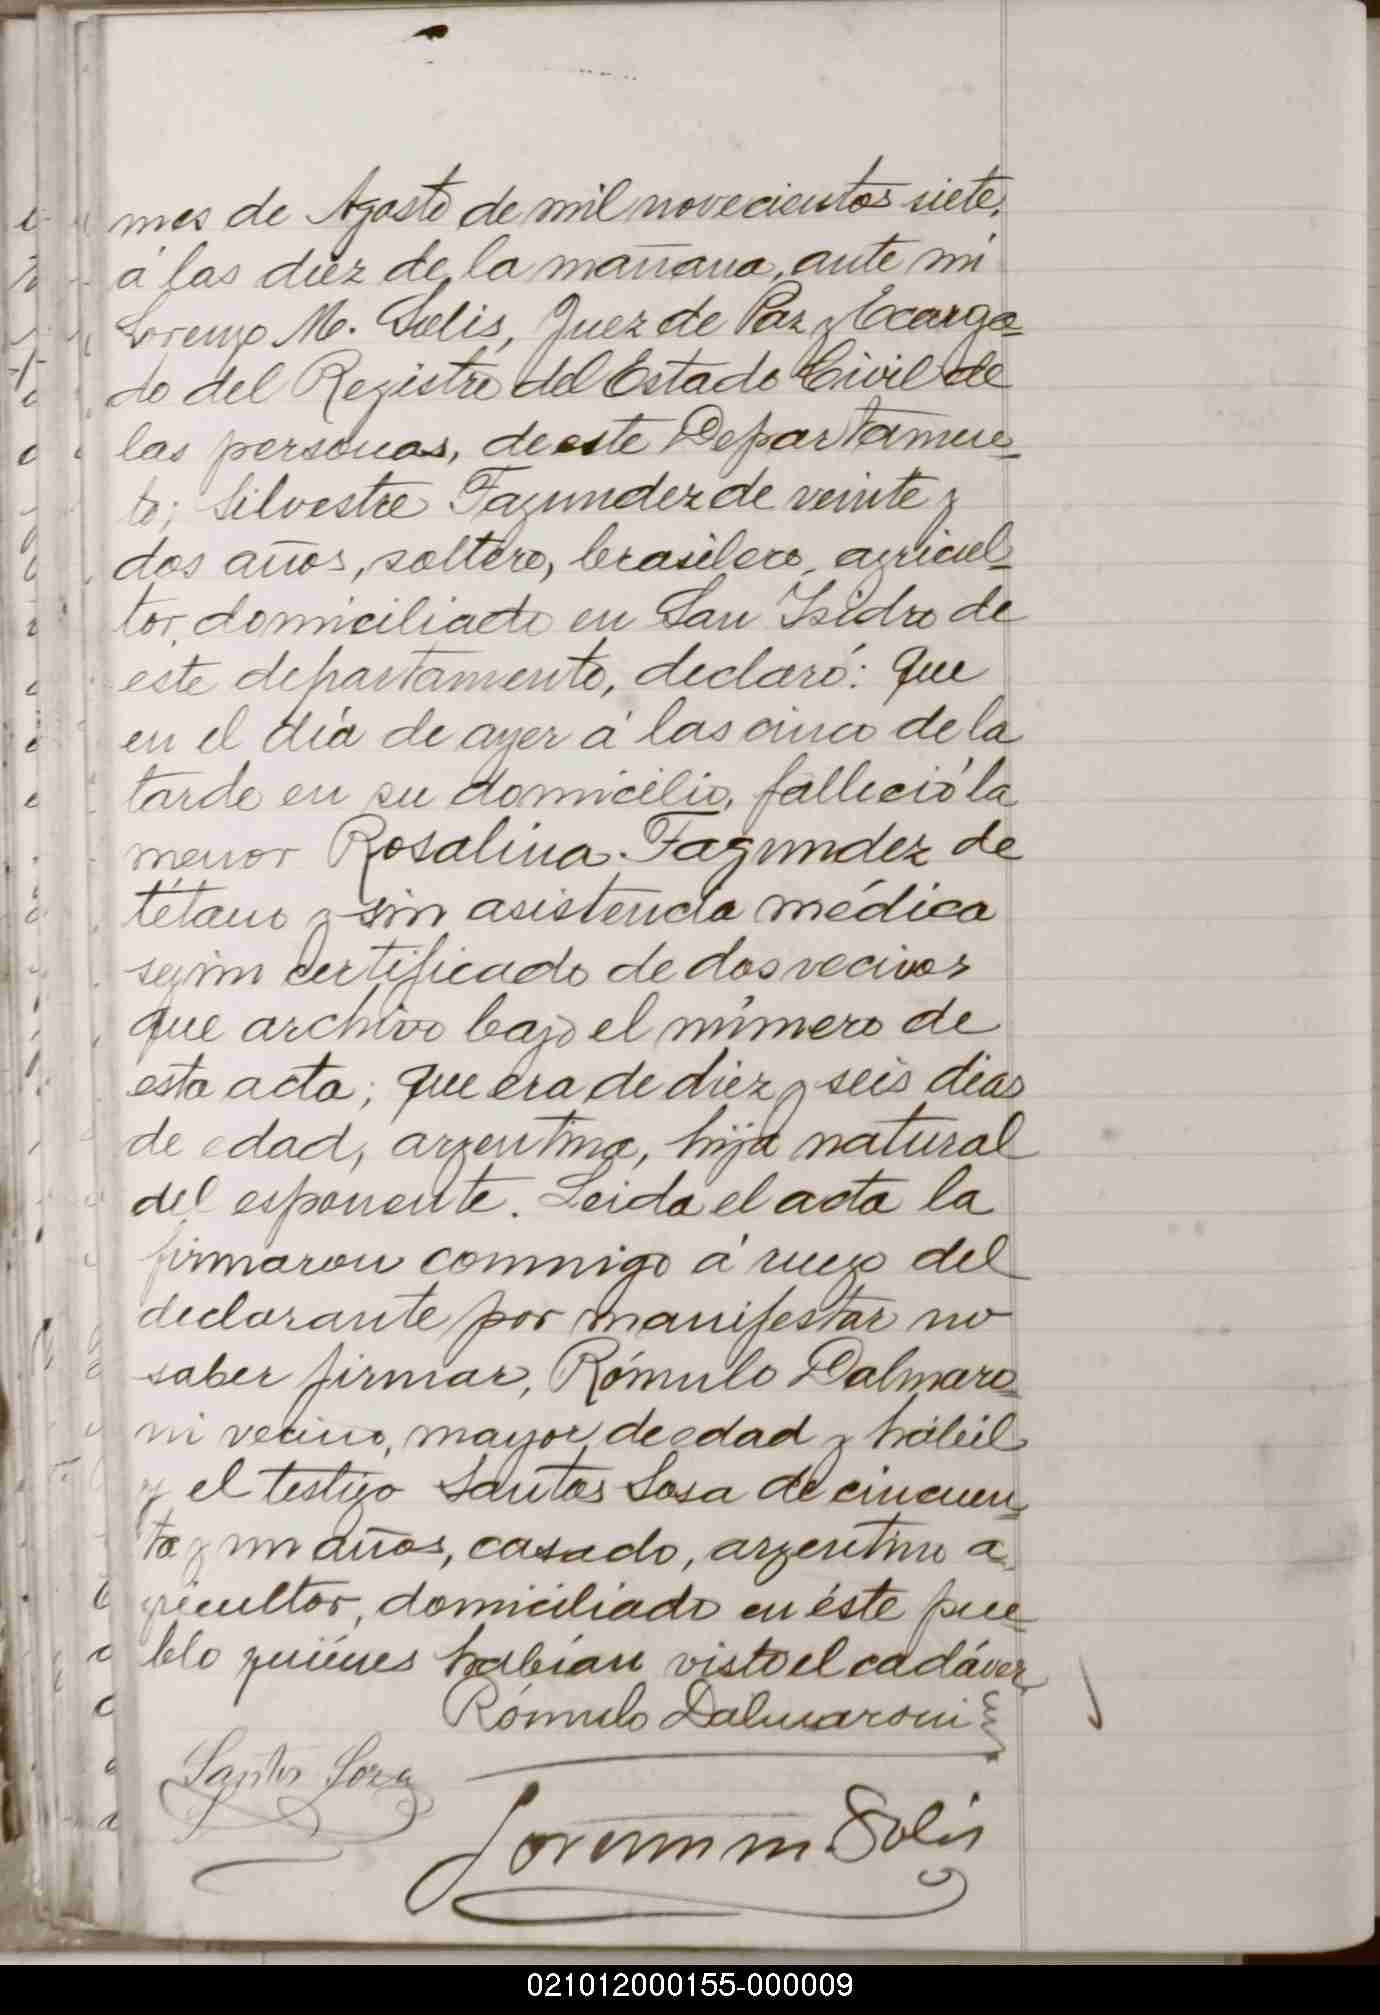 mes de Agosto de mil novecientos siete,
á las diez de la mañana, ante mi
Lorenzo M. Solis, Juez de Paz y Ecarga-
do del Registro del Estado Civil de
las personas, de este Departamen-
to; Silvestre Fagundez de veinte y
dos años, soltero, brasilero, agricul-
tor, domiciliado en San Isidro de
éste departamento, declaró: Que
en el día de ayer á las cinco de la
tarde en su domicilio, falleció la
menor Rosalina Fagundez de
tétano y sin asistencia médica
segun certificado de dos vecinos
que archivo bajo el número de
esta acta; que era de diez y seis dias
de edad, argentina, hija natural
del esponente. Leida el acta la
firmaron conmigo á ruego del
declarante por manifestar no
saber firmar, Rómulo Dalmaro-
ni vecino, mayor de edad y hábil
y el testigo Santos Sosa de cincuen-
ta y un años, casado, argentino a-
gricultor, domiciliado en éste pue-
blo quiénes habían visto el cadáver
Rómulo Dalmaroni
Santos Soza
Lorenzo M. Solis
021012000155-000009